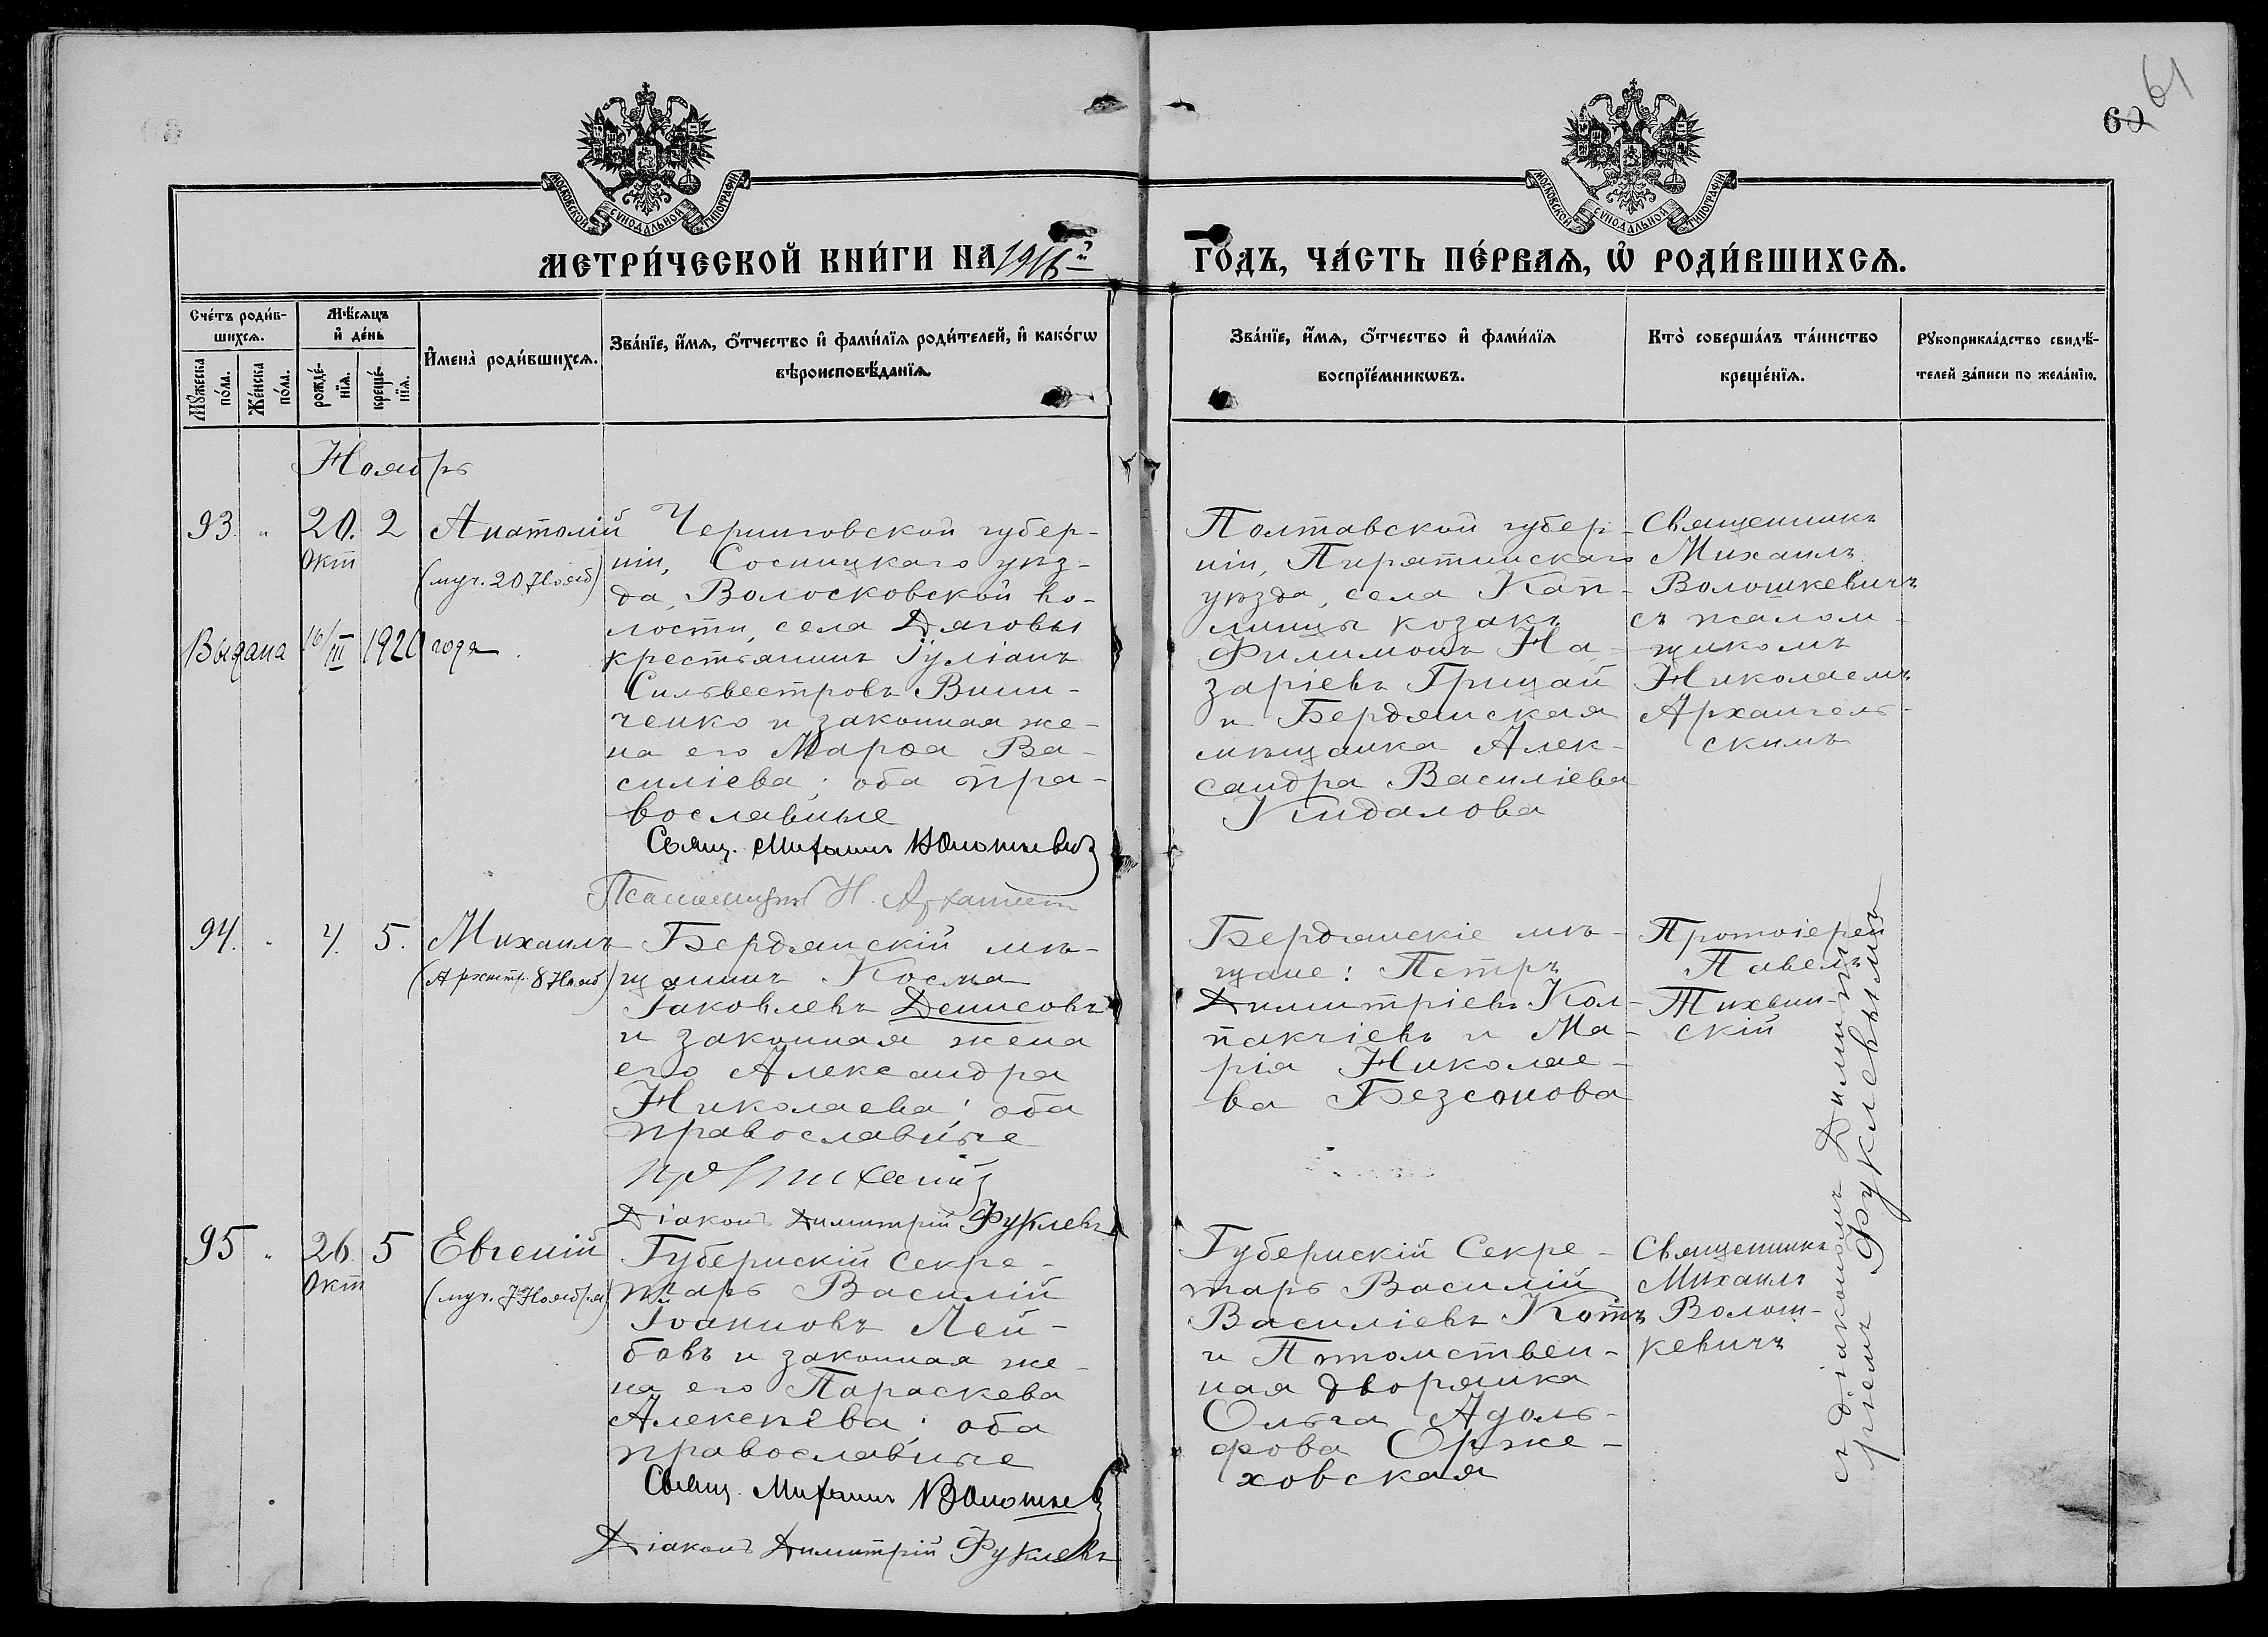 61
60
МОСКОВСКОЙ СѴНОДАЛЬНОЙ ТИПОГРАФІИ
МОСКОВСКОЙ СѴНОДАЛЬНОЙ ТИПОГРАФІИ
МЕТРИ́ЧЕСКОЙ КНИ́ГИ НА 1916й
ГО́ДЪ, ЧА́СТЬ ПЕ́РВАѦ, Ѡ҆ РОДИ́ВШИХСѦ.
Сче́тъ роди́в-
шихсѧ.
Мꙋ́жеска
по́ла.
Же́нска
по́ла.
Мѣ́сѧцъ
и҆ де́нь
рожде́-
нїѧ.
креще́-
нїѧ.
И҆мена̀ роди́вшихсѧ.
Зва́нїе, и҆́мѧ, ѻ҆́тчество и҆ фами́лїѧ роди́телей, и҆ како́гѡ
вѣроисповѣ́данїѧ.
Зва́нїе, и҆́мѧ, ѻ҆́тчество и҆ фами́лїѧ
воспрїе́мникѡвъ.
Кто̀ соверша́лъ та́инство
креще́нїѧ.
Рꙋкоприкла́дство свидѣ́-
телей за́писи по жела́нїю.
Ноябрь
93 " 20. 2 Анатолій
Окт
(муч. 20 Нояб)
Выдана 16/III 1920 года
Черниговской губер-
ніи, Сосницкаго уѣз-
да, Волосковской во-
лости, села Дяговы
крестьянинъ Іуліанъ
Сильвестровъ Вини-
ченко и законная же-
на его Марѳа Ва-
силіева; оба пра-
вославные
Свящ. Михаилъ Волошкевич
Псаломщикъ Н. Архангел
Полтавской губер-
ніи, Пирятинскаго
уѣзда, села Кап-
линцы козакъ
Филимонъ На-
заріевъ Грицай
и Бердянская
мѣщанка Алек-
сандра Василіева
Кидалова
Священникъ
Михаилъ
Волошкевичъ
съ псалом-
щикомъ
Николаемъ
Архангель-
скимъ
94. " 4. 5. Михаилъ
(Архистр. 8 Нояб)
Бердянскій мѣ-
щанинъ Косма
Іаковлевъ Денисовъ
и законная жена
его Александра
Николаева; оба
православные
Діаконъ Димитрій Фуклевъ
Бердянскіе мѣ-
щане: Петръ
Димитріевъ Кол-
пакчіевъ и Ма-
рія Николае-
ва Безсонова
Протоіерей
Павелъ
Тихвин-
скій
95 " 26 5 Евгеній
Окт
(муч. 7 Ноября)
Губернскій Секре-
тарь Василій
Іоанновъ Лей-
бовъ и законная же-
на его Параскева
Алексѣева; оба
православные
Свящ. Михаилъ Волошкев
Діаконъ Димитрій Фуклевъ
Губернскій Секре-
тарь Василій
Василіевъ Котъ
и Потомствен-
ная дворянка
Ольга Адоль-
фова Орже-
ховская
Священникъ
Михаилъ
Волош-
кевичъ
съ діакономъ Димит-
ріемъ Фуклевымъ